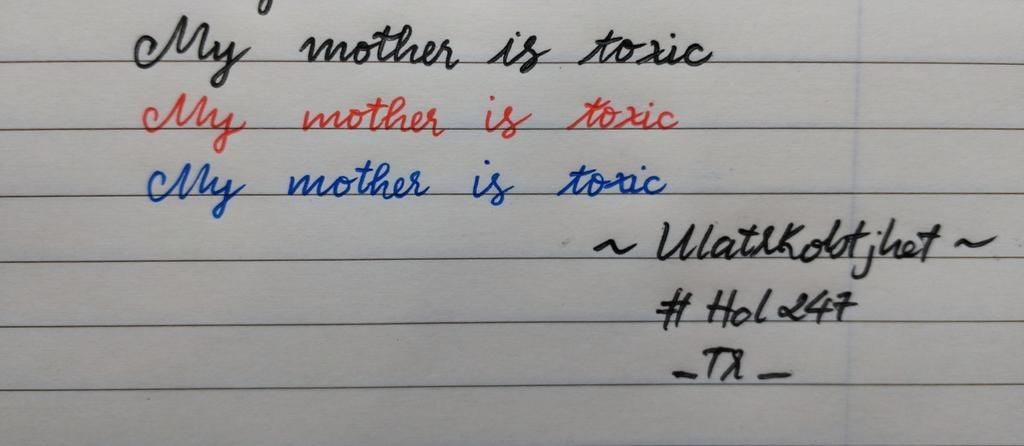 My mother is toxic
My mother is toxic
My mother is toxic
# Hol 247